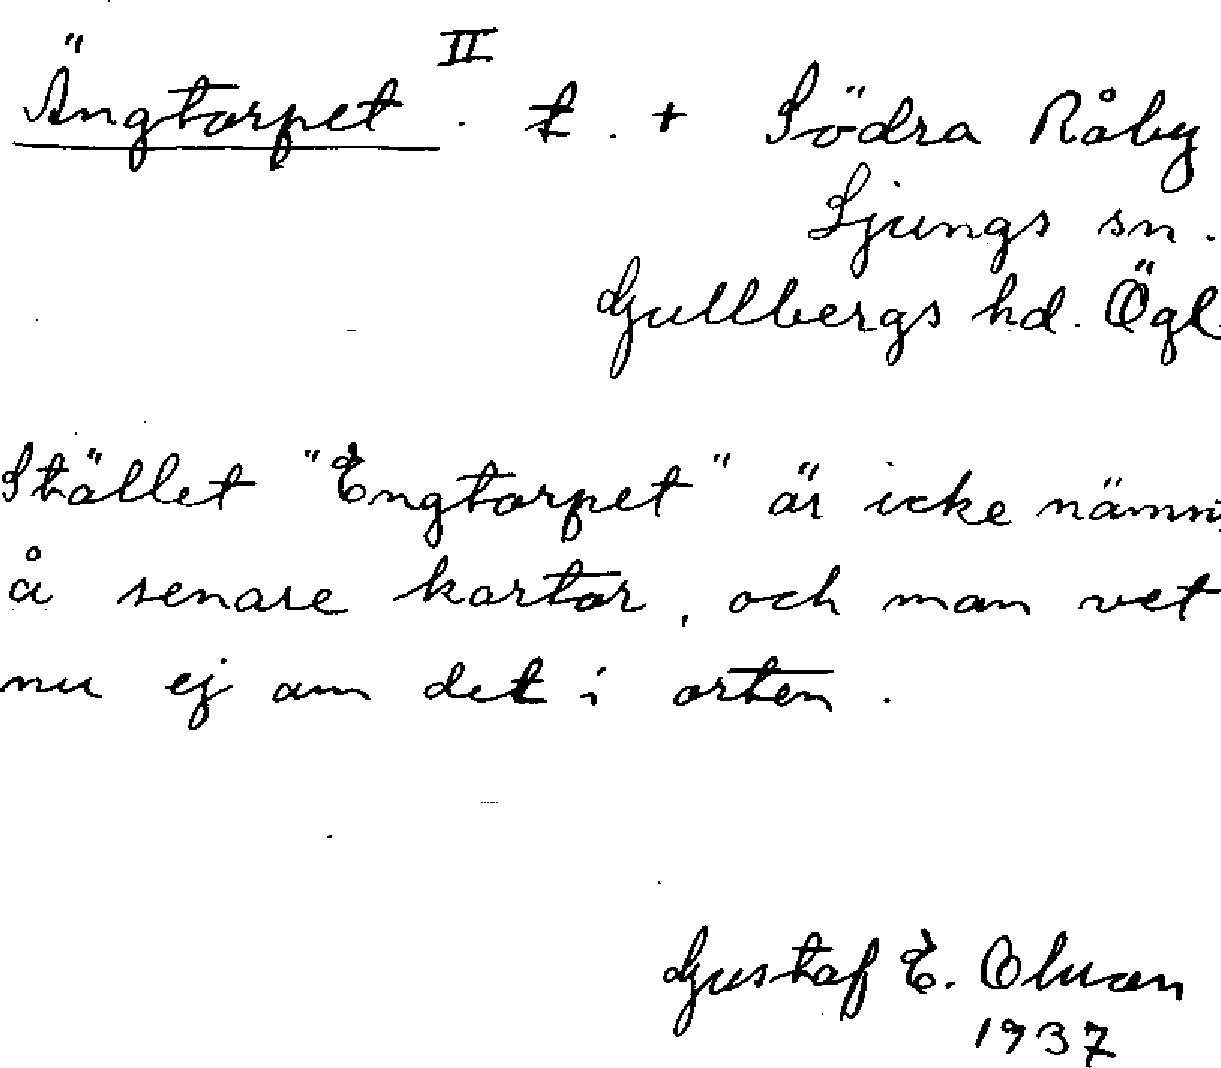 Ängtorpet II . t. + Södra Råby
Ljungs sn.
Gullbergs hd. Ögl.
Stället "Engtorpet" är icke nämn
å senare kartor, och man vet
nu ej om det i orten.
Gustaf E.
1937